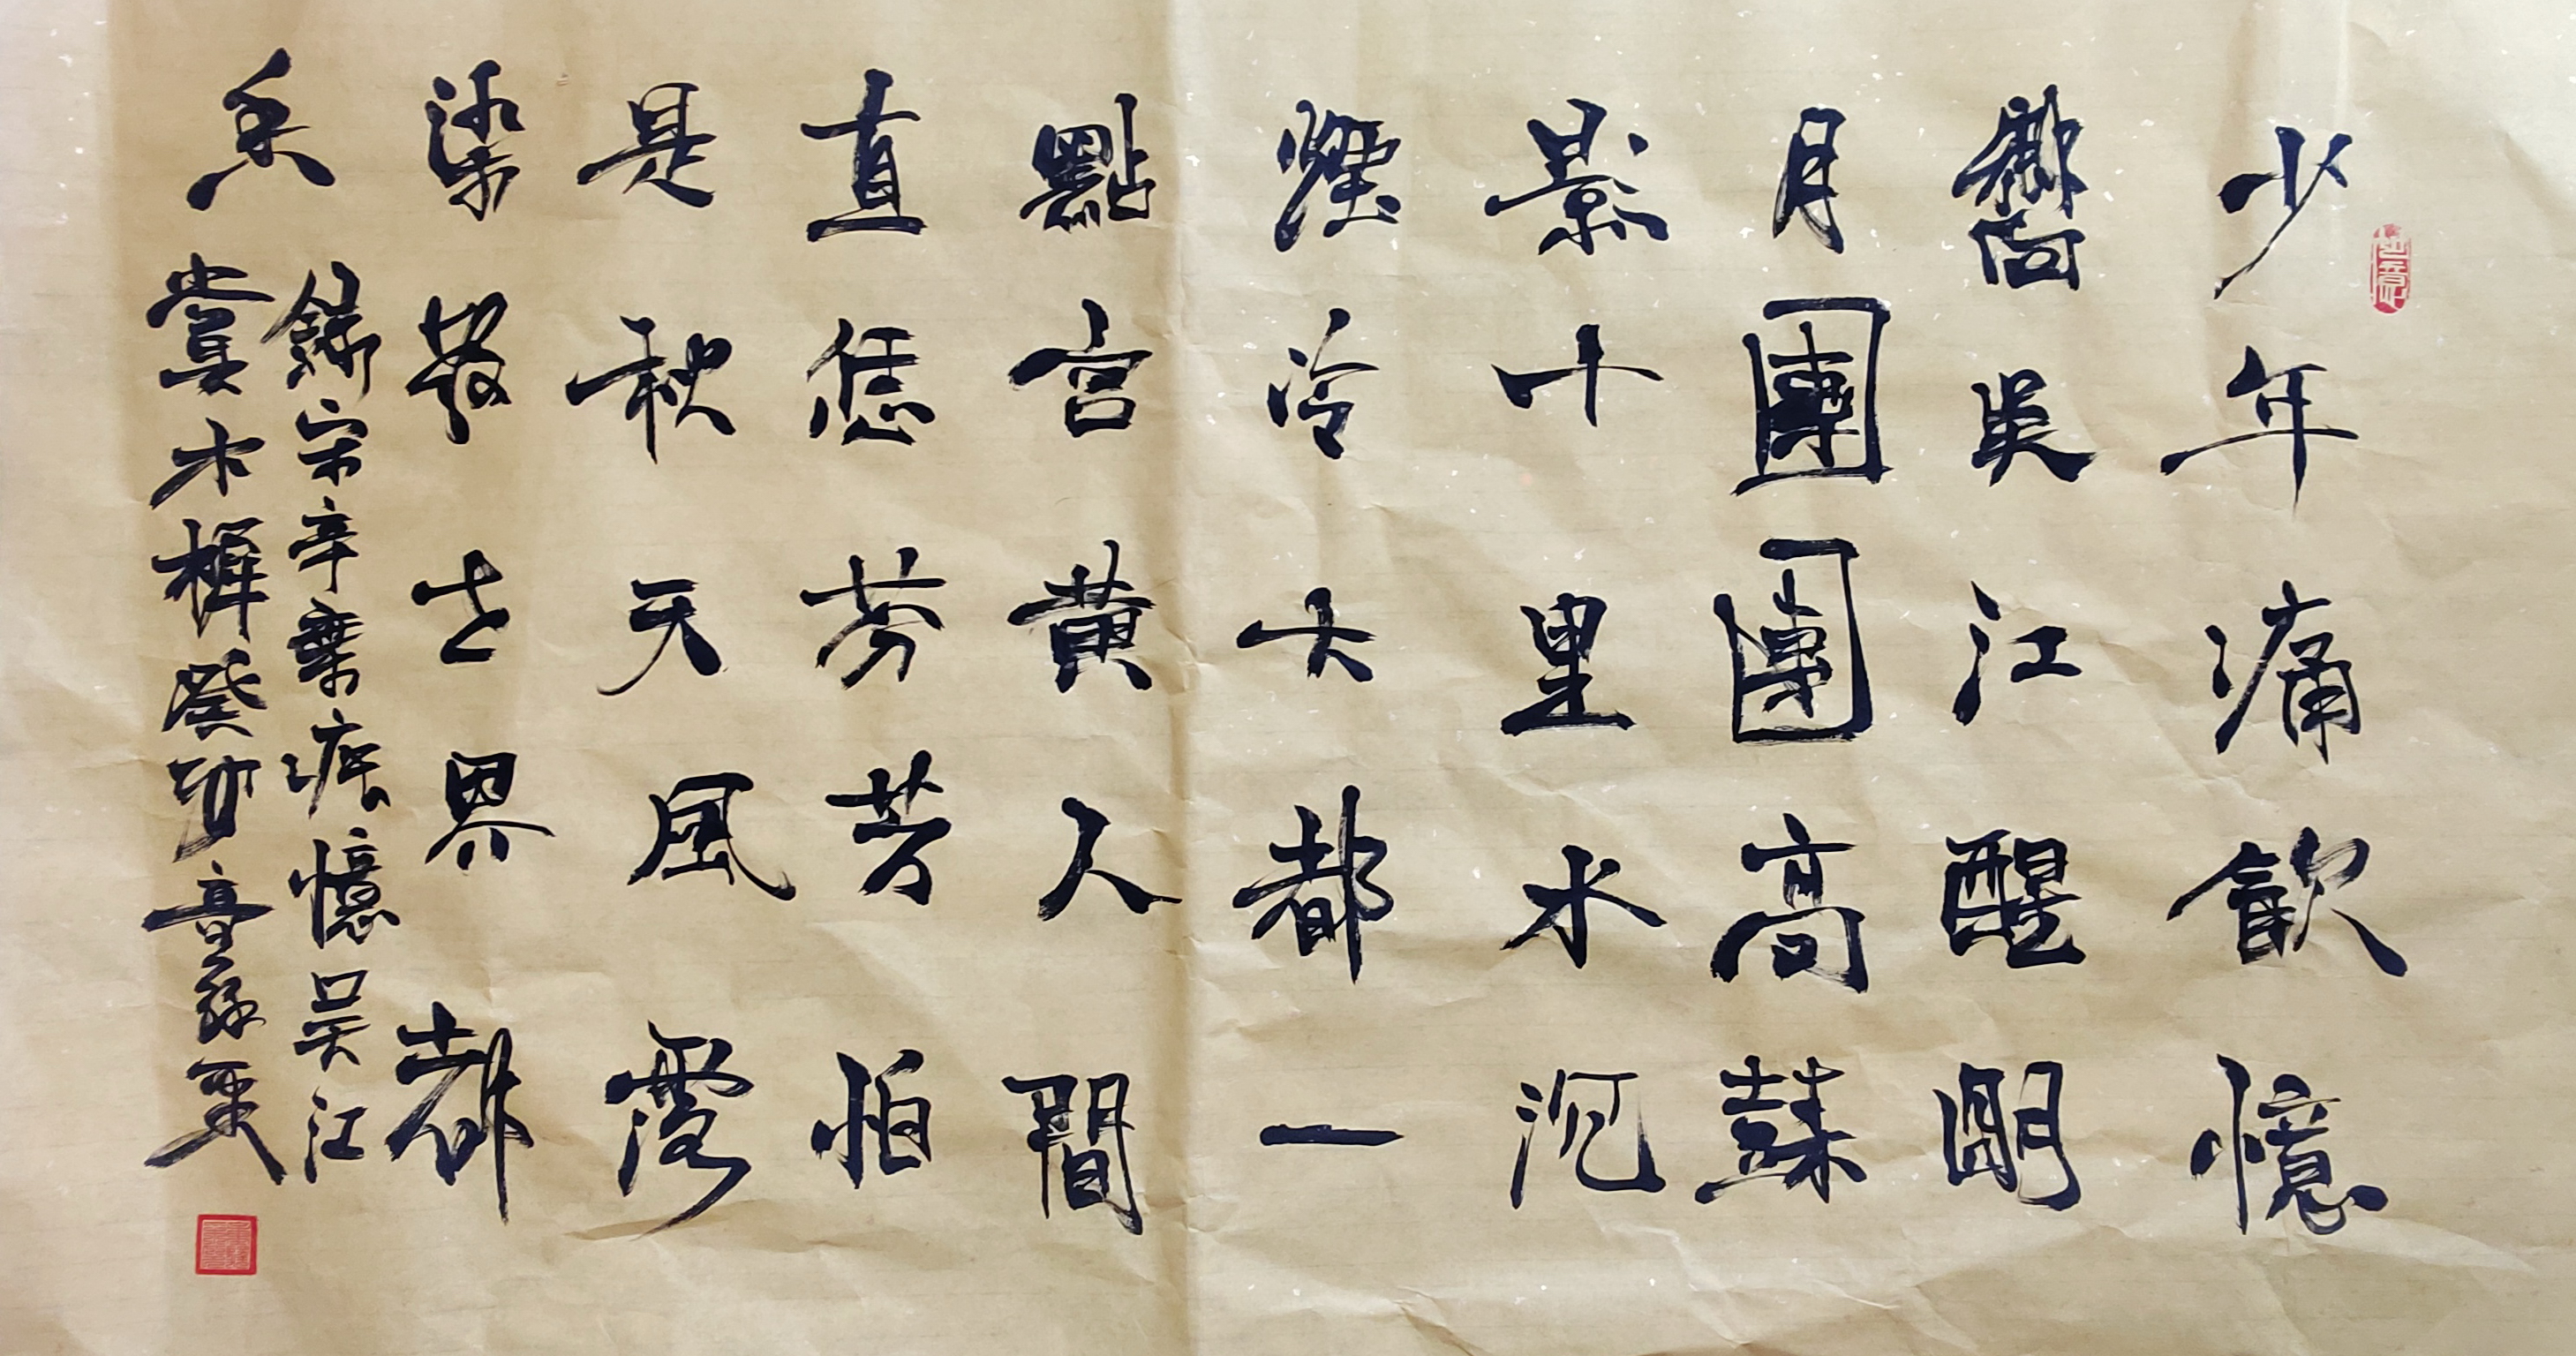 少年痛飲憶
嚮吳江醒明
月團團高樹
影十里水沉
煙冷大都一
點宮黃人間
直恁芬芳怕
是秋天風露
染教世界都
香
錄宋辛棄疾憶吳江
賞木樨癸卯